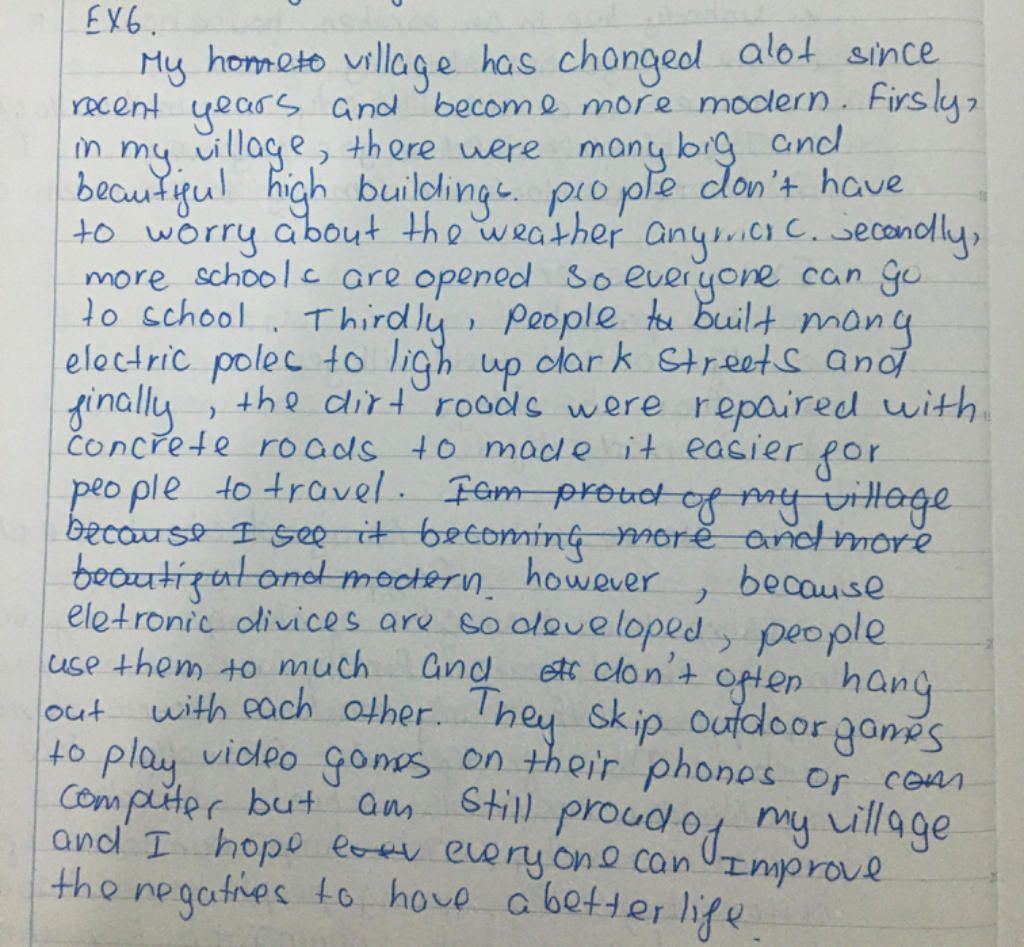 EX6.
My hometo village has changed alot since
recent years and become more modern. Firsly,
in my village, there were many big and
beautiful high buildings. people don't have
to worry about the weather anymore. Secondly,
more schools are opened so everyone can go
to school. Thirdly, people tu built many
electric poles to ligh up dark streets and
finally, the dirt roads were repaired with
concrete roads to made it easier for
people to travel. I am proud of my village
because I see it becoming more and more
beautiful and modern. however, because
eletronic divices are so developed, people
use them to much and don't often hang
out with each other. They skip outdoor games
to play video games on their phones or com
computer but am still proud of my village
and I hope everyone can improve
the negatives to have a better life.